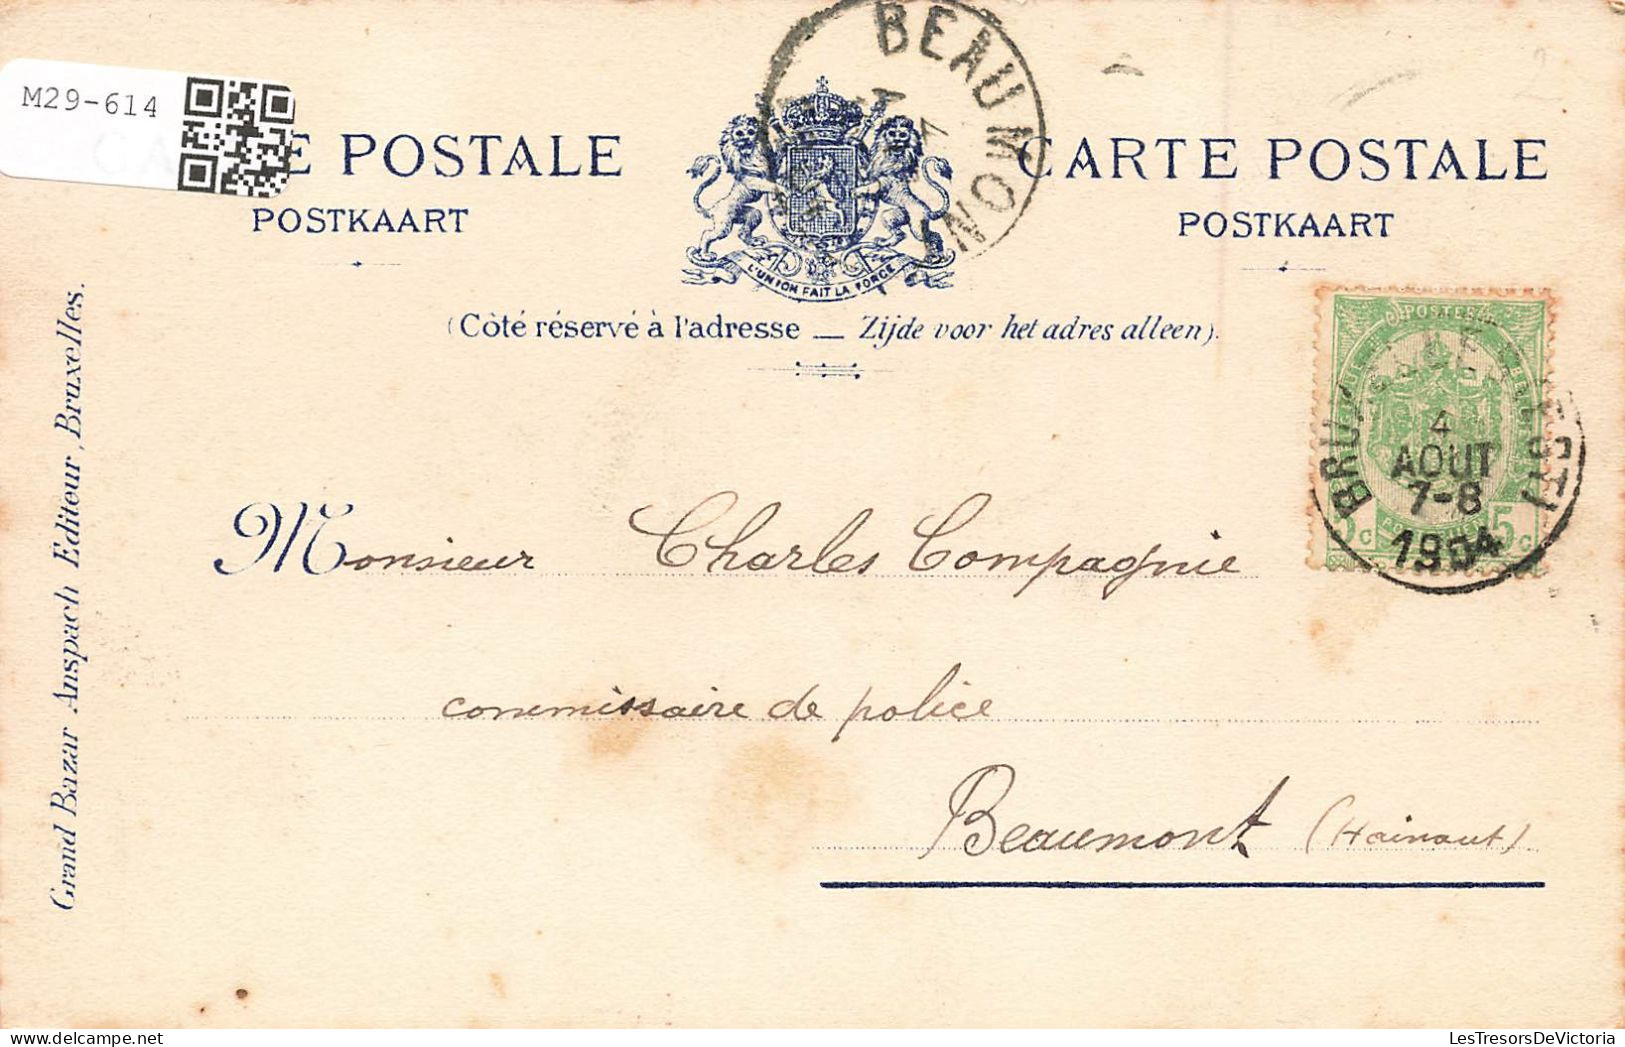 M29-614
E POSTALE
POSTKAART
BEAUMONT
L'UNION FAIT LA FORCE
CARTE POSTALE
POSTKAART
(Côté réservé à l'adresse — Zijde voor het adres alleen).
POSTES
5c 5c
BRUXELLES EST
4
AOUT
7-8
1904
Monsieur Charles Compagnie
commissaire de police
Beaumont (Hainaut)
Grand Bazar Anspach Editeur, Bruxelles.
LesTresorsDeVictoria